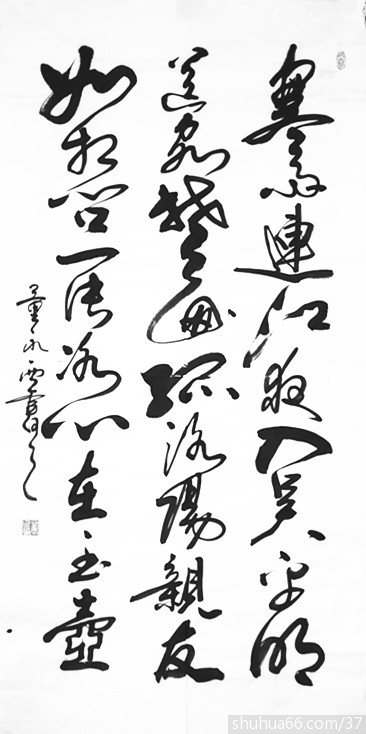 寒雨連江夜入吳平明
送客楚山孤洛陽親友
如相問一片冰心在玉壺
shuhua66.com/37